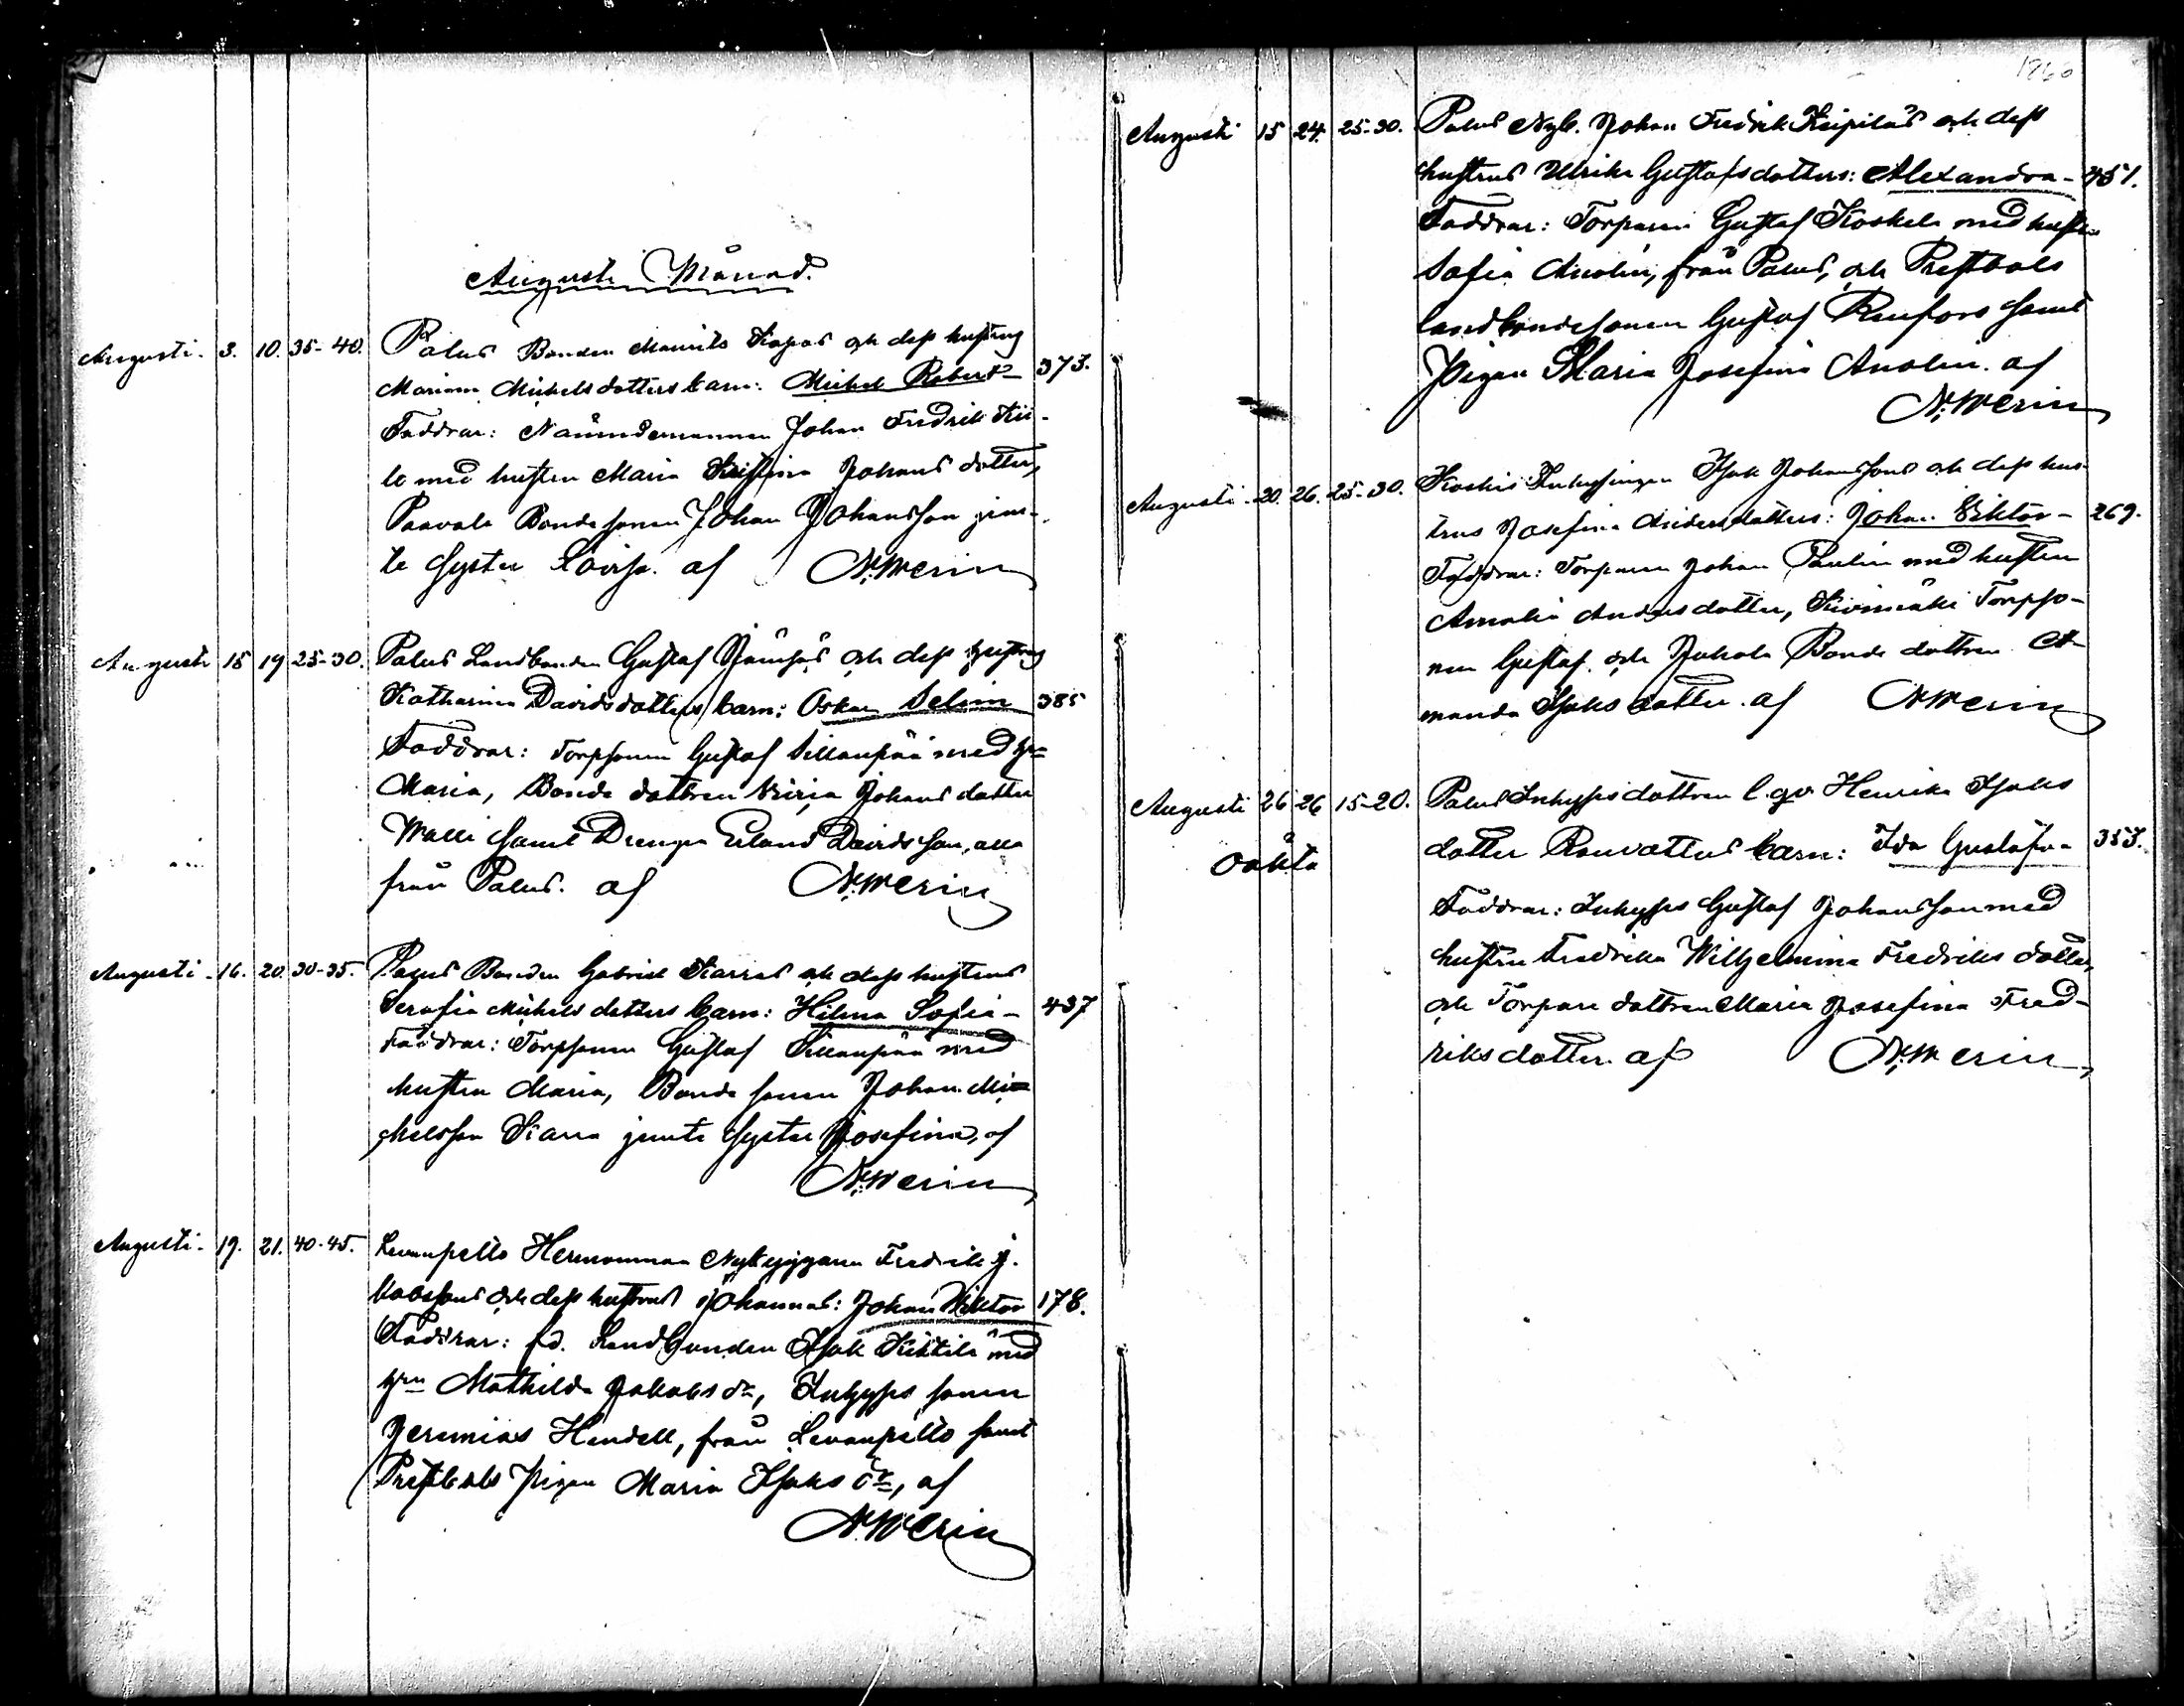 Augusti Månad.
Augusti. 3. 10. 35-40. Palus Bonden Maurits Kapas och dess hustrus
Mariana Michelsdotters barn: Michel Robert- 373.
Faddrar: Nämndemannen Johan Fredrik Kii-
le med hustru Maria Kristina Johans dotter,
Paavola Bondesonen Johan Johansson jem-
te syster Lovisa. af N. Merin
Augusti 15 19 25-30. Palus Landbonden Gustaf Jämsäs och dess hustrus
Katharina Davidsdotters barn: Oskar Selim 385
Faddrar: Torpsonen Gustaf Sillanpää med hu
Maria, Bonde dottren Maria Johans dotter
Walli samt Drengen Erland Davidsson, alla
från Palus. af N. Merin
Augusti. 16. 20. 30-35. Palus Bonden Gabriel Karras och dess hustrus
Serafia Michels dotters barn: Hilma Sofia- 437
Faddrar: Torpsonen Gustaf Sillanpää med
hustru Maria, Bonde sonen Johan Mi-
chelsson Karra jemte syster Josefina, af
N. Merin
Augusti. 19. 21. 40-45. Levanpelto Hemmaman Nybyggaren Fredrik J.
kobssons och dess hustrus Johannas: Johan Viktor 178.
Faddrar: fd. Landbonden Isak Kikkilä med
hrn Mathilda Jakobs dr, Inhyses sonen
Jeremias Hendell, från Levanpelto samt
Prestbols Pigan Maria Isaks dr, af
N. Merin
1866
Augusti 15 24. 25-30. Palus Nyb. Johan Fredrik Keipiläs och dess
hustrus Ulrika Gustafsdotters: Alexandra- 451.
Faddrar: Torparen Gustaf Koskela med hustru
Sofia Anolin, från Palus, och Prestbols
landbondesonen Gustaf Renfors samt
Pigan Maria Josefina Anolin. af
N. Merin
Augusti. 20. 26. 25-30. Koskis Inhysingen Isak Johanssons och dess hus-
trus Josefina Andersdotters: Johan Viktor- 269.
Faddrar: Torparen Johan Paulin med hustru
Amalia Andersdotter, Kivimäki Torpso-
nen Gustaf och Juhola Bonde dottren A-
manda Isaks dotter. af N. Merin
Augusti 26 26 15-20. Palus Inhyses dottren l. qv. Henrika Isaks
oäkta
dotter Rauvattus barn: Ida Gustafva 353.
Faddrar: Inhyses Gustaf Johansson med
hustru Fredrika Wilhelmina Fredriks dotter,
och Torpare dottren Maria Josefina Fred-
riks dotter. af N. Merin